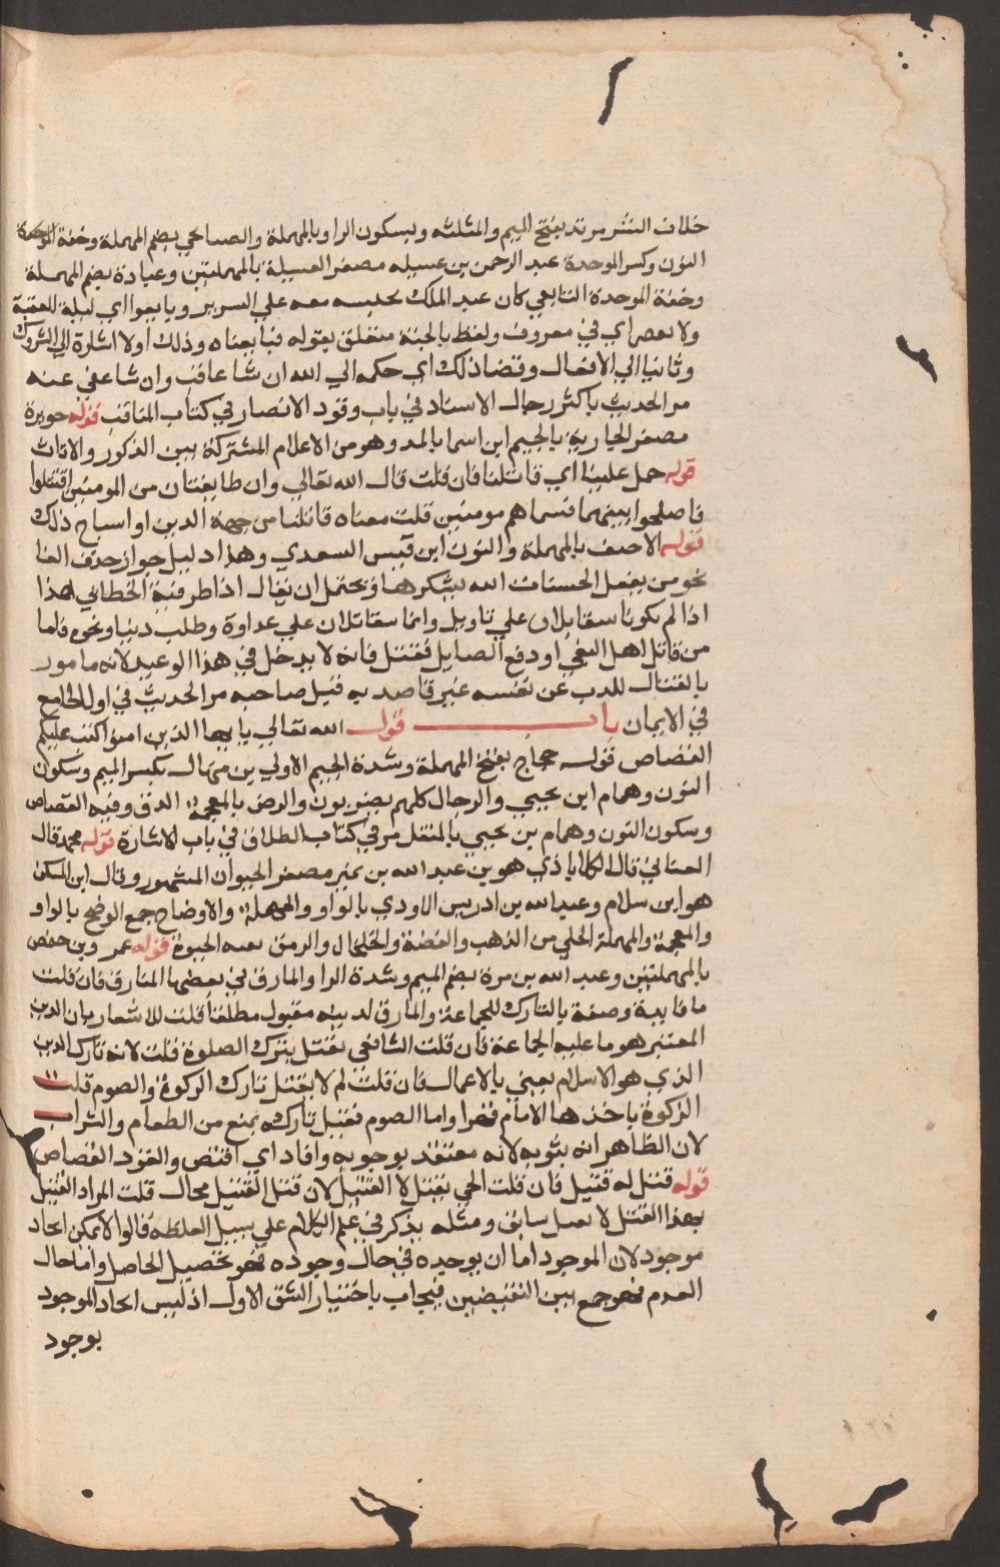 خلاف النشر مرتد بفتح الميم والمثلثه وبسكون الرا وبالمهملة والصنابحي بضم المهملة وخفة الموحدة
النون وكسر الموحدة عبد الرحمن بن عسيله مصغر العسيلة بالمهملتين وعبادة بضم المهملة
وخفة الموحدة التابعي كان عبد الملك يجلسه معه علي السرير وبايعوا اي ليلة العقبة
ولا نعصي اي في معروف ولفظ بالجنة متعلق بقوله فبايعناه وذلك اولا اشارة الي التروك
وثانيا الي الافعال وقضا ذلك اي حكمه الي الله ان شا عاقب وان شا عفي عنه
مر الحديث باكثر رجال الاسناد في باب وفود الانصار في كتاب المناقب قوله جويرة
مصغر الجارية بالجيم ابن اسما بالمد وهو من الاعلام المشتركة بين الذكور والاناث
قوله حمل علينا اي قاتلنا فان قلت قال الله تعالي وان طايفتان من المومنين اقتتلوا
فاصلحوا بينهما فسماهم مومنين قلت معناه قاتلنا من جهة الدين او استباح ذلك
قوله الاحنف بالمهملة والنون ابن قيس السعدي وهذا دليل جواز حذف الفا
نحو من يفعل الحسنات الله يشكرها ويحتمل ان يقال اذا ظرفية الخطابي هذا
اذا لم يكونا يتقاتلان علي تاويل وانما يتقاتلان علي عداوة وطلب دنيا ونحوه فاما
من قاتل اهل البغي او دفع الصايل فقتل فانه لا يدخل في هذا الوعيد لانه مامور
بالقتال للذب عن نفسه غير قاصد به قتل صاحبه مر الحديث في اول الجامع
في الايمان باب قول الله تعالي يا ايها الذين امنوا كتب عليكم
القصاص قوله حجاج بفتح المهملة وشدة الجيم الاولي بن منهال بكسر الميم وسكون
النون وهمام ابن يحيي والرجال كلهم بصريون والرض بالمعجمة الدق وفيه القصاص
وسكون النون وهمام بن يحيي بالمثقل مر في كتاب الطلاق في باب الاشارة قوله محمد قال
الغساني قال الكلاباذي هو بن عبد الله بن نمير مصغر الحيوان المشهور وقال ابن السكن
هو ابن سلام وعبد الله بن ادريس الاودي بالواو والمهملة والاوضاح جمع الوضح بالواو
والمعجمة والمهملة الحلي من الذهب والفضة والخلخال والرمق بقية الحيوة قوله عمر وبن حفص
بالمهملتين وعبد الله بن مرة بضم الميم وشدة الرا والمارق في بعضها المفارق فان قلت
ما فايدة وصفه بالتارك للجماعة والمارق لدينه مقبول مطلقا قلت للاشعار بان الدين
المعتبر هو ما عليه الجماعة فان قلت الشافعي يقتل بترك الصلوة قلت لانه تارك الدين
الذي هو الاسلام يعني بالاعمال فان قلت لم لا يقتل تارك الزكوة والصوم قلت
الزكوة ياخذها الامام قهرا واما الصوم فقيل تاركه يمنع من الطعام والشراب
لان الظاهر انه ينويه لانه معتقد بوجوبه واقاد اي اقتص والقود القصاص
قوله قتل له قتيل فان قلت الحي يقتل لا القتيل لان قتل القتيل محال قلت المراد القتيل
بهذا القتل لا بقتل سابق ومثله يذكر في علم الكلام علي سبيل المغلطة قالوا لا يمكن ايجاد
موجود لان الموجود اما ان يوجده في حال وجوده فهو تحصيل الحاصل واما حال
العدم فهو جمع بين النقيضين فيجاب باختيار الشق الاول اذ ليس ايجاد الموجود
بوجود